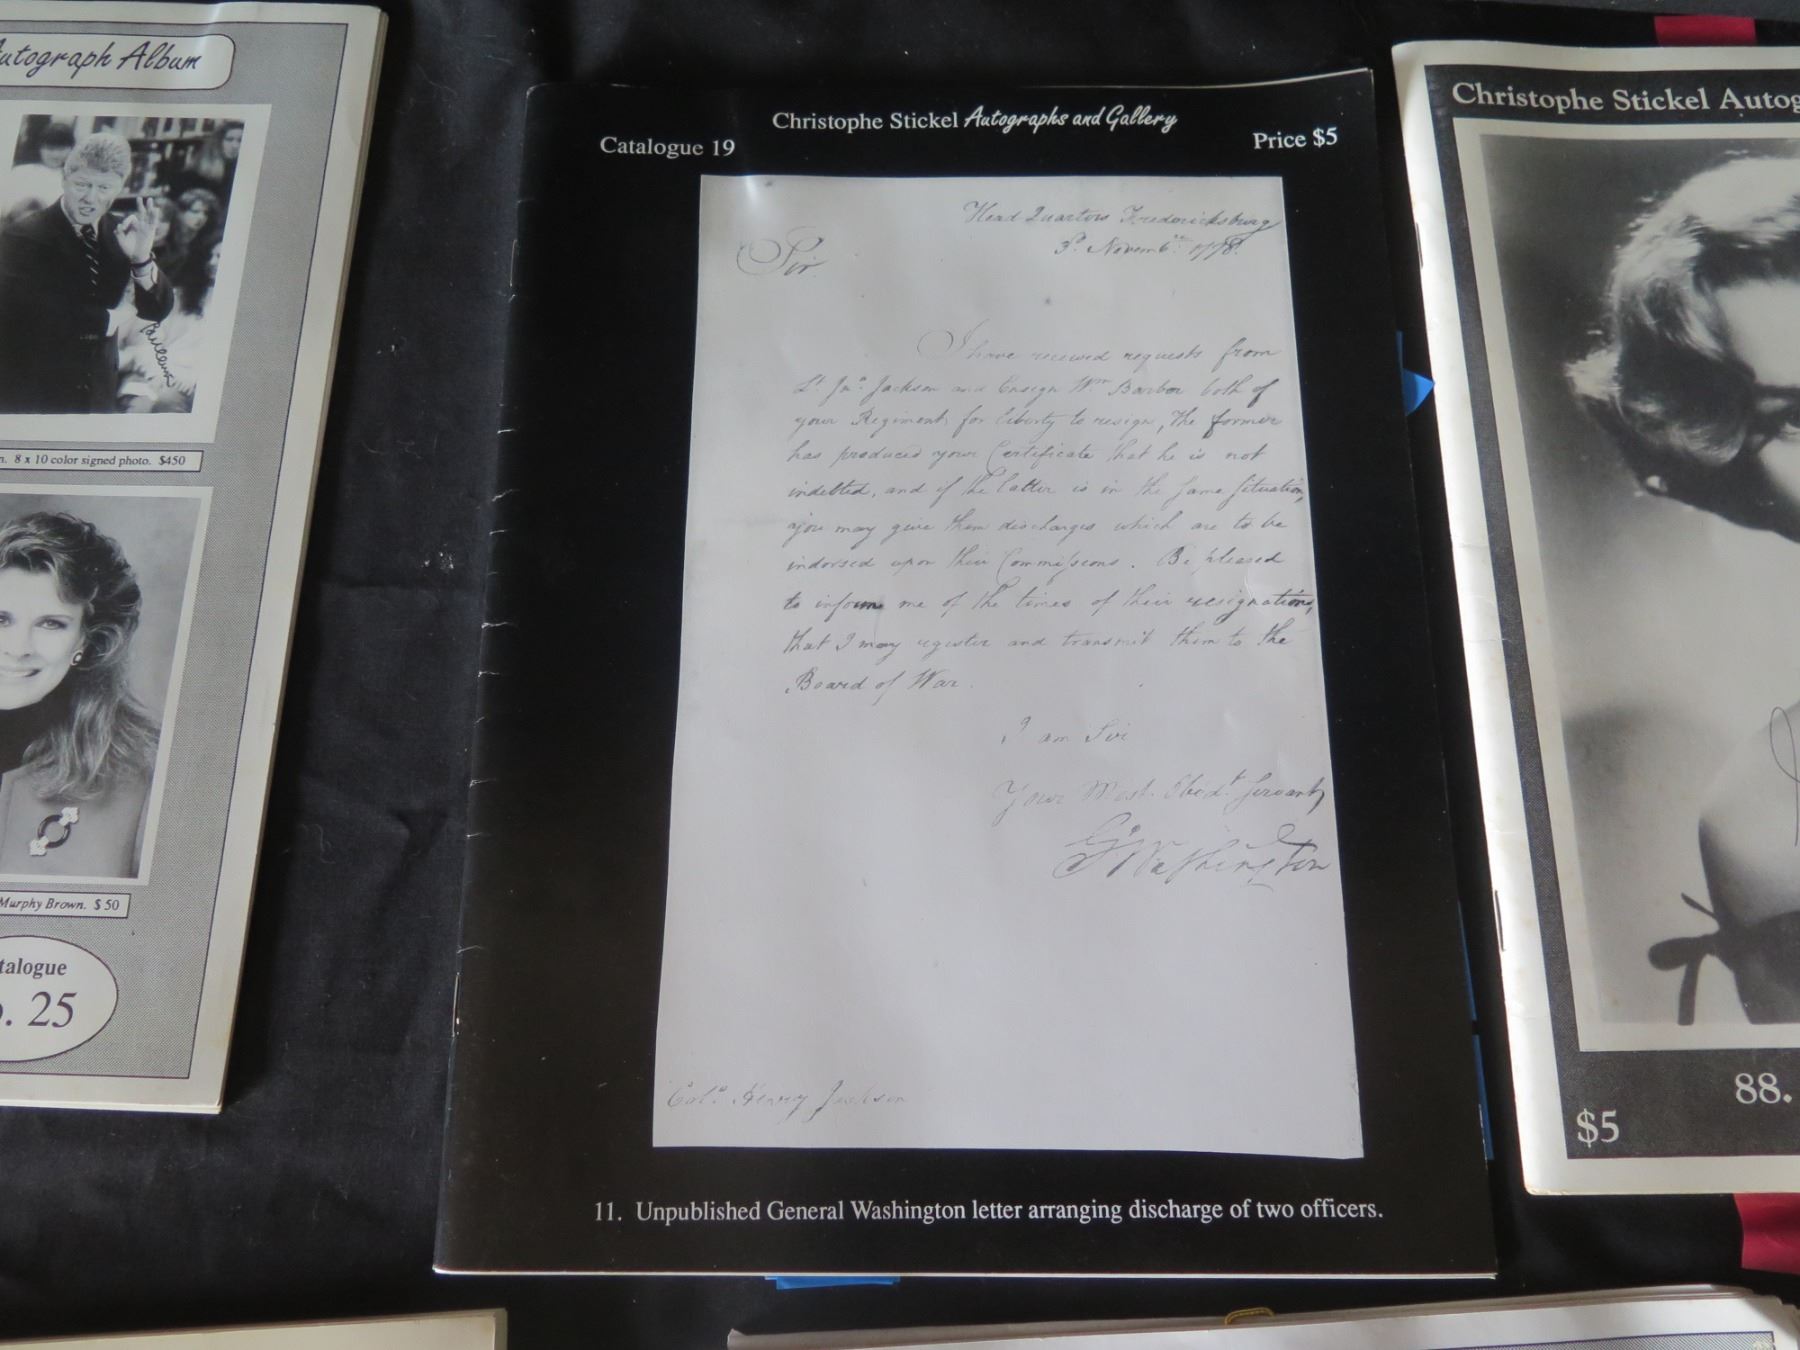 Autograph Album
n. 8 x 10 color signed photo. $450
Murphy Brown. $50
talogue
o. 25
Christophe Stickel Autographs and Gallery
Catalogue 19
Price $5
Head Quarters Fredericksburg
3d. Novemb.er 1778.
Sir
I have received requests from
Lt. Jno. Jackson and Ensign Wm Barber both of
your Regiment, for liberty to resign, The former
has produced your Certificate that he is not
indebted, and if the latter is in the same situation,
you may give them discharges which are to be
indorsed upon their Commissions. Be pleased
to inform me of the times of their resignations,
that I may register and transmit them to the
Board of War.
I am Sir
Your Most Obedt. Servant
Go Washington
Colo. Henry Jackson
11. Unpublished General Washington letter arranging discharge of two officers.
Christophe Stickel Autog
$5
88.